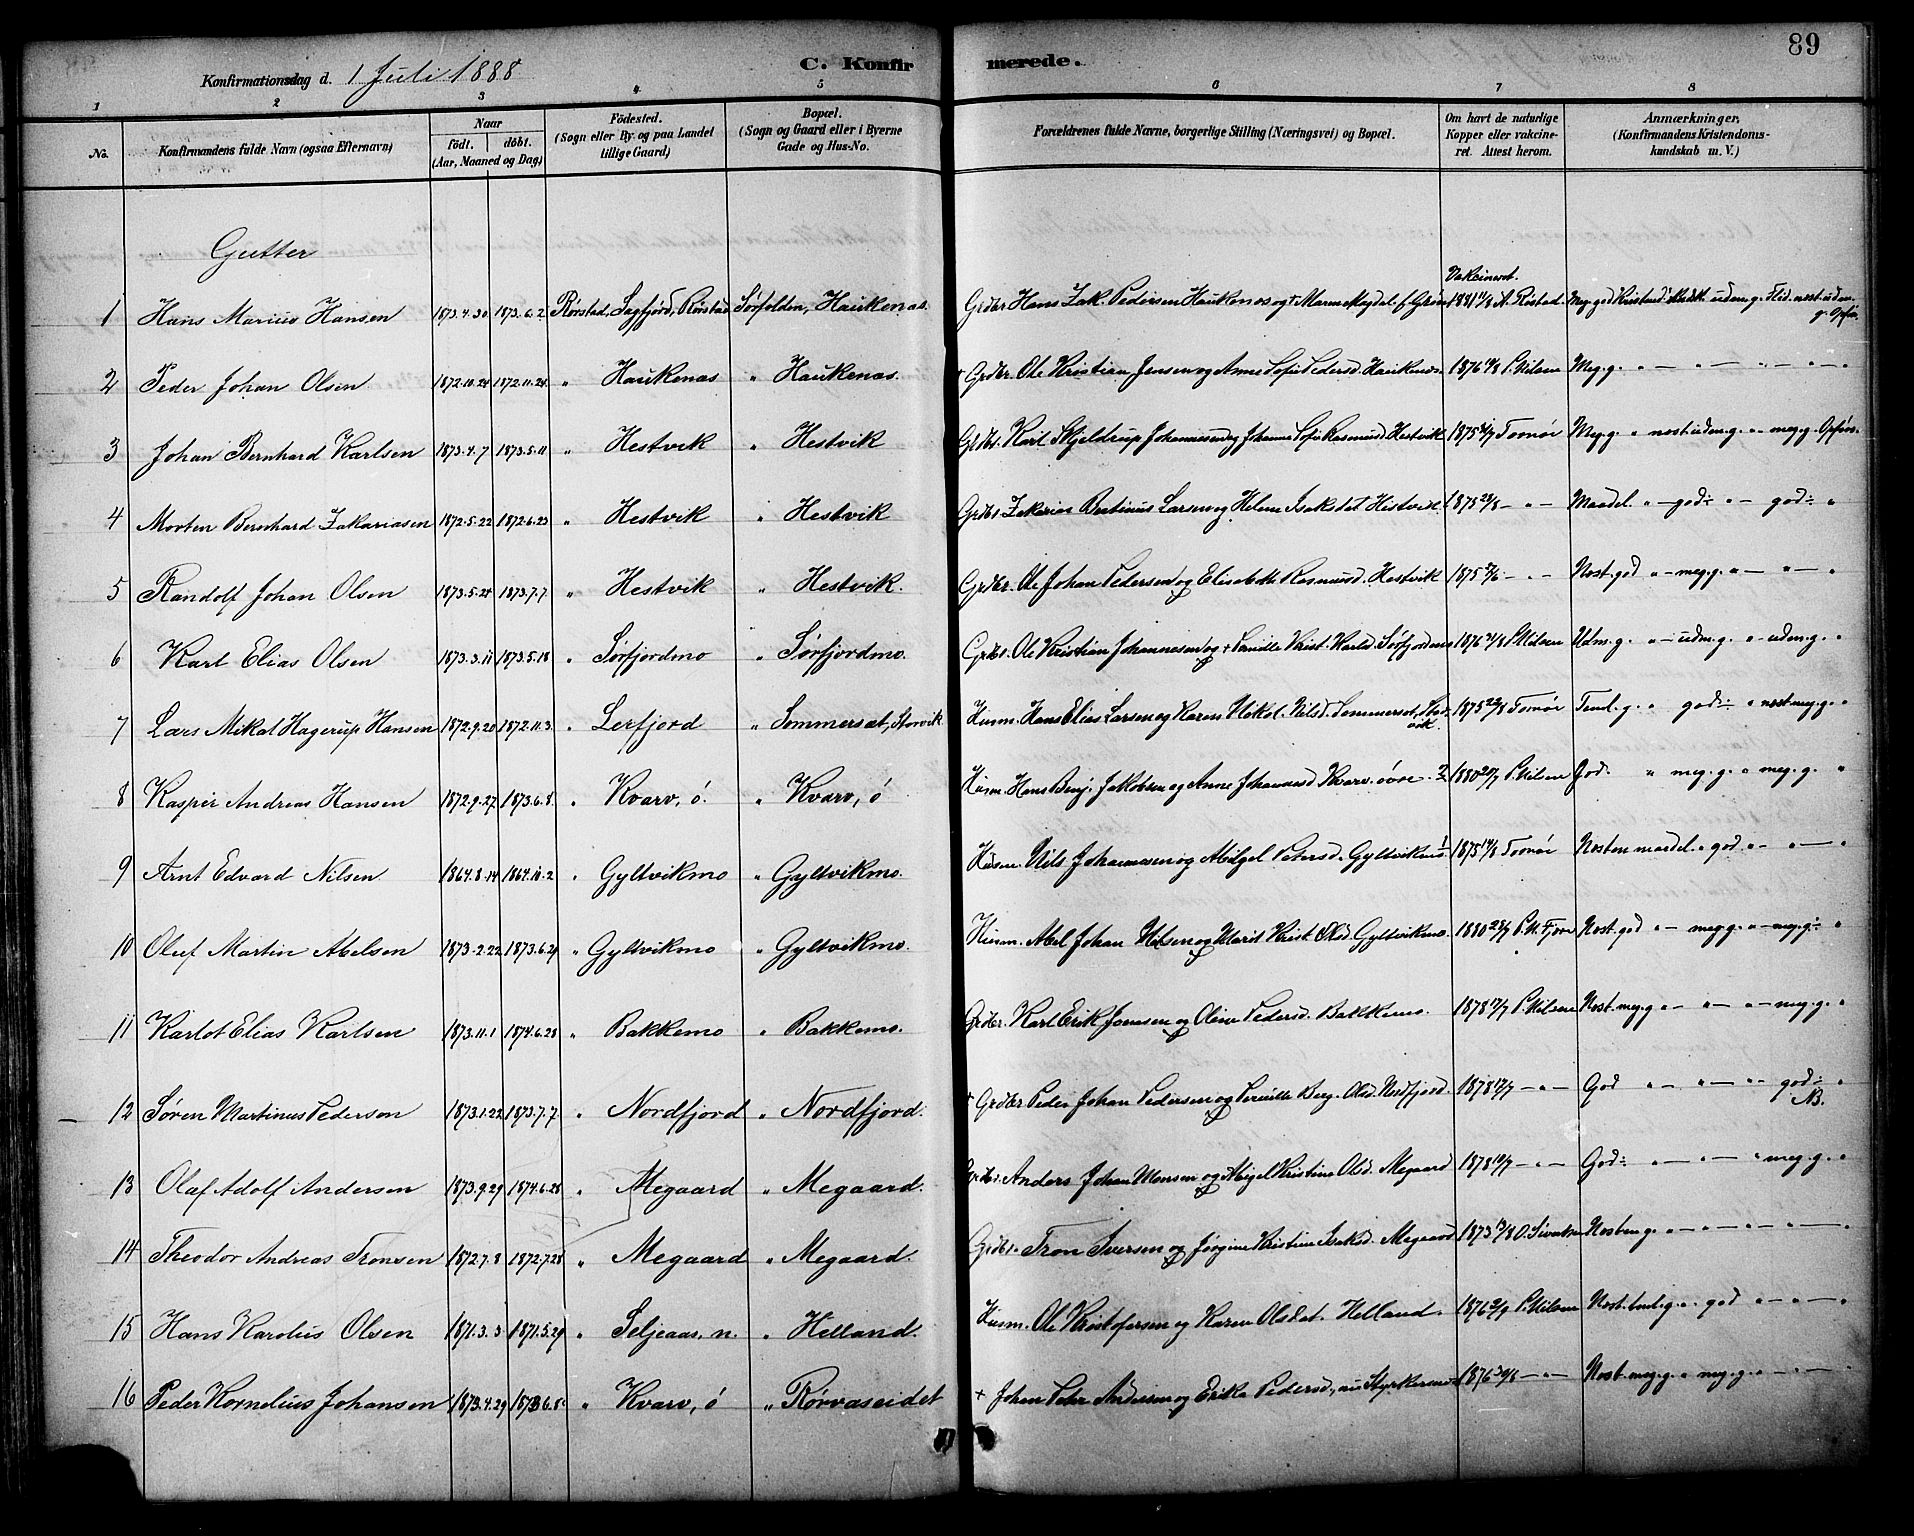 89
Konfirmationsdag d. 1 Juli 1888
C. Konfirmerede.
1 2 3 4 5 6 7 8
No.
Konfirmandens fulde Navn (ogsaa Efternavn)
Naar
födt. döbt.
(Aar, Maaned og Dag)
Födested.
(Sogn eller By og paa Landet
tillige Gaard)
Bopæl.
(Sogn og Gaard eller i Byerne
Gade og Hus-No.
Forældrenes fulde Navne, borgerlige Stilling (Næringsvei) og Bopæl.
Om havt de naturlige
Kopper eller vakcine-
ret. Attest herom.
Anmærkninger,
(Konfirmandens Kristendoms-
kundskab m. V.)
Gutter
Vakcineret.
1 Hans Marius Hansen 1873.4.30 1873.6.2 Rörstad, Sagfjord, Rörstad Sörfolden, Haukenas. Grdbr Hans Zak. Pedersen Haukenes og + Maren Magdal. 1881 11/8 A. Ristad. Meg. god
2 Peder Johan Olsen 1872.10.24 1872.11.24 " Haukenas " Haukenas. + Grdbr. Ole Kristian Jensen og Anne Sofie Pedersd. Haukenes. 1876 P. Nilsen Meg. g. " — " — " — "
3 Johan Bernhard Karlsen 1873.4.7 1873.5.11 " Hestvik " Hestvik Grdbr. Karl Skjeldrup Johannesen og Johanne Sofie Rasmusd. Hestvik 1875 Tornör Meg. g. " nost. udm. g. " meg. g. Opför.
4 Morten Bernhard Zakariasen 1872.5.22 1872.6.23 " Hestvik " Hestvik Grdbr. Zakarias Bertinus Larsen og Helene Isaksdat. Hestvik. 1875 23/8 — " — Maadel. " — god÷ " — god÷ "
5 Randolf Johan Olsen 1873.5.24 1873.7.7. " Hestvik " Hestvik. Grdbr. Ole Johan Pedersen og Elisabeth Rasmusd. Hestvik 1875 — " — Nost. god " — meg. g. " — " — "
6 Karl Elias Olsen 1873.3.11 1873.5.18 " Sörfjordmo " Sörfjordmo. Grdbr. Ole Kristian Johannesen og + Pernille Krist. Karlsd. Sörfjordmo 1876 P. Nilsen Udm. g. " — udm. g. " — udm. g. "
7 Lars Mikal Hagerup Hansen 1872.9.20 1872.11.3. " Lerfjord " Sommerset, Storvik Husm. Hans Elias Larsen og Karen Nikol. Nilsd. Sommerset, Storvik. 1875 Tornör Teml. g. " god÷ " nost. meg. g. "
8 Kasper Andreas Hansen 1872.9.27 1873.6.8. " Kvarv, ö. " Kvarv, ö Husm. Hans Benj. Jakobsen og Anne Johannesd. Kvarv. övre. 1880 P. Nilsen God. " meg. g. " meg. g. "
9 Arnt Edvard Nilsen. 1864.8.14 1864.10.2 " Gyltvikmo " Gyltvikmo. Husm. Nils Johannesen og Abigel Petersd. Gyltvikmo. 1875 Tornör Nosten maadel. " god " — " — "
10 Oluf Martin Abelsen 1873.2.22 1873.6.29 " Gyltvikmo " Gyltvikmo. Husm. Abel Johan Nilsen og Marit Krist. Olsd. Gyltvikmo. 1880 Nost. god " — meg. g. " — meg. g÷ "
11 Karlot Elias Karlsen 1873.11.1 1874.6.28 " Bakkemo " Bakkemo. Grdbr. Karl Erik Jonsen og Oline Pedersd. Bakkemo. 1878 17/7 P. Nilsen Nost. meg. g " — " — " — meg. g. "
12 Sören Martinus Pedersen 1873.1.22 1873.7.7. " Nordfjord " Nordfjord. + Grdbr Peder Johan Pedersen og Pernille Berg. Olsd. Nordfjord. 1878 17/7 — " — God " — " — " — god÷ "
NB.
13 Olaf Adolf Andersen 1873.9.29 1874.6.28 " Megaard " Megaard. Grdbr. Anders Johan Monsen og Abigel Kristine Olsd. Megaard 1878 — " — God÷ " — " — " meg. g. "
14 Theodor Andreas Tronsen 1872.7.8 1872.7.28 " Megaard " Megaard. Grdbr. Tron Iversen og Jörgine Kristine Isaksd. Megaard 1873 13/8 O. Sivertsen Nosten g. " — " — " — " — "
15 Hans Karolius Olsen 1871.3.3 1871.5.29 " Seljeaas, n. " Helland. Husm. Ole Kristofersen og Karen Olsdat. Helland. 1876 P. Nilsen Nost. teml. g. " god " — " — "
16 Peder Kornelius Johansen 1873.4.29 1873.6.8. " Kvarv, ö " Rörvaseidet + Johan Peter Andersen og Erika Pedersd., nu 1876 — " — Nost. meg. g. " meg. g. " — " — "